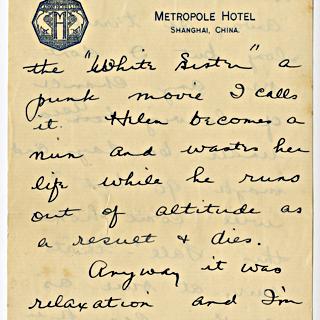 METROPOLE HOTEL
SHANGHAI, CHINA.
the "White Sister" a
punk movie I calls
it. Helen becomes a
nun and wastes her
life while he runs
out of altitude as
a result & dies.
Anyway it was
relaxation and I'm